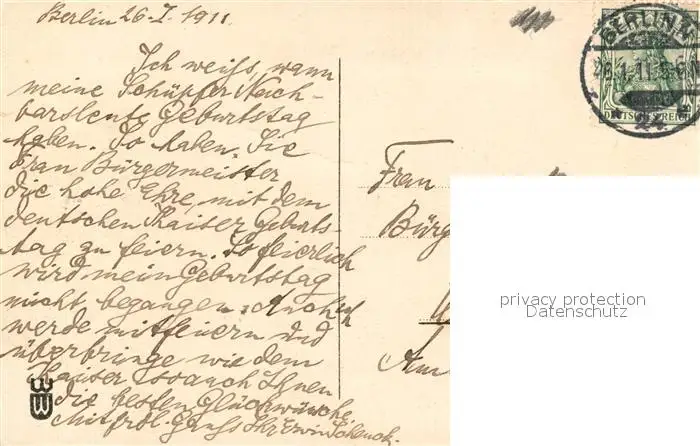 Berlin 26.I.1911.
Ich weiß, wann
meine Schüpfer Nach-
barsleute Geburtstag
haben. So haben Sie
Frau Bürgermeister
die hohe Ehre, mit dem
deutschen Kaiser Geburts-
tag zu feiern. So feierlich
wird mein Geburtstag
nicht begangen. Auch ich
werde mitfeiern und
überbringe wie dem
Kaiser so auch Ihnen
die besten Glückwünsche
Mit frdl. Gruß Ihr Erwin Schenck.
BERLIN N.
26.1.11.5-6N
24
DEUTSCHES REICH
Frau
Bürg
Am
W
privacy protection
Datenschutz